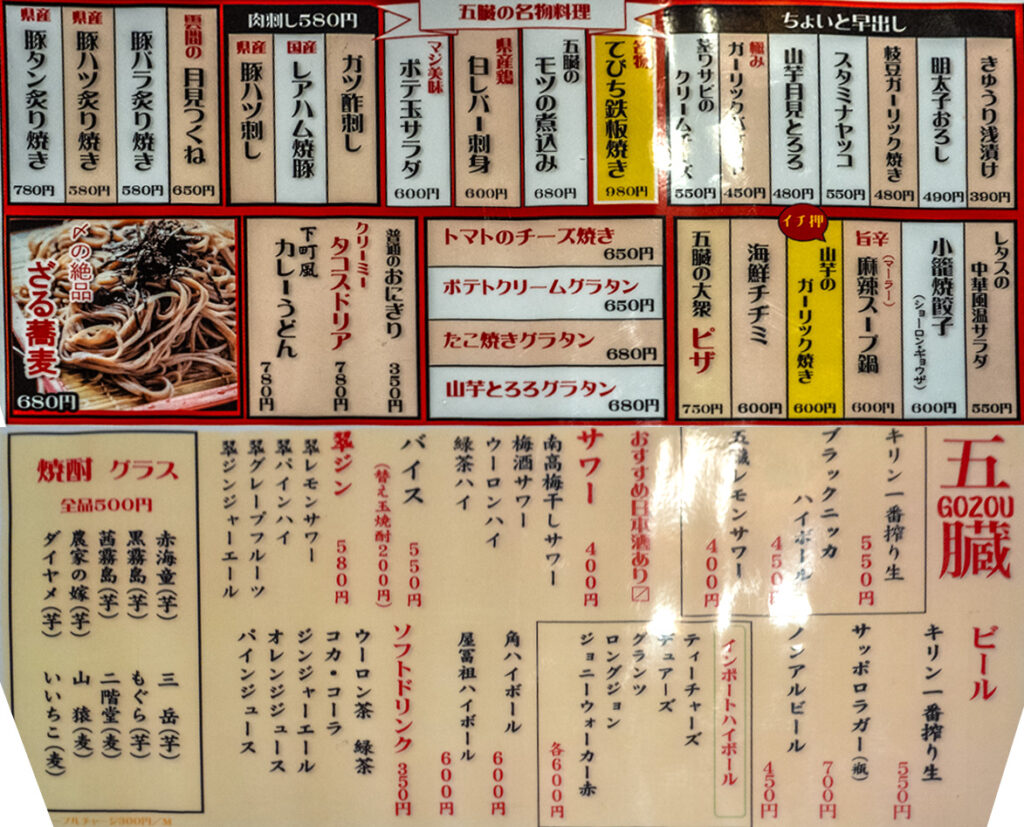 ちょいと早出し
きゅうり浅漬け
390円
明太子おろし
490円
枝豆ガーリック焼き
480円
スタミナヤッコ
550円
山芋月見とろろ
480円
極み
ガーリック
450円
茎ワサビの
クリームチーズ
550円
五臓の名物料理
名物
てびち鉄板焼き
980円
五臓の
モツの煮込み
680円
県産鶏
白レバー刺身
600円
マジ美味
ポテ玉サラダ
600円
肉刺し580円
ガツ酢刺し
国産
レアハム焼豚
県産
豚ハツ刺し
雲間の
月見つくね
650円
豚バラ炙り焼き
580円
県産
豚ハツ炙り焼き
580円
県産
豚タン炙り焼き
780円
レタスの
中華風温サラダ
550円
小籠焼餃子
(ショーロンギョウザ)
600円
旨辛
麻辣スープ鍋
(マーラー)
600円
イチ押
山芋の
ガーリック焼き
600円
海鮮チヂミ
600円
五臓の大衆
ピザ
750円
トマトのチーズ焼き
650円
ポテトクリームグラタン
650円
たこ焼きグラタン
680円
山芋とろろグラタン
680円
普通のおにぎり
350円
クリーミー
タコスドリア
780円
下町風
カレーうどん
780円
〆の絶品
ざる蕎麦
680円
五臓
GOZOU
ビール
キリン一番搾り生
550円
サッポロラガー(瓶)
700円
ノンアルビール
450円
キリン一番搾り生
550円
ブラックニッカ
ハイボール
450円
五臓レモンサワー
400円
インポートハイボール
ティーチャーズ
デュアーズ
グランツ
ロングジョン
ジョニーウォーカー赤
各600円
おすすめ日本酒あり〼
サワー
400円
南高梅干しサワー
梅酒サワー
ウーロンハイ
緑茶ハイ
角ハイボール
600円
屋冨祖ハイボール
600円
バイス
550円
(替え玉焼酎200円)
翠ジン
580円
翠レモンサワー
翠パインハイ
翠グレープフルーツ
翠ジンジャーエール
ソフトドリンク
350円
ウーロン茶 緑茶
コカ・コーラ
ジンジャーエール
オレンジジュース
パインジュース
焼酎 グラス
全品500円
赤海童(芋)
黒霧島(芋)
茜霧島(芋)
農家の嫁(芋)
ダイヤメ(芋)
三岳(芋)
もぐら(芋)
二階堂(麦)
山猿(麦)
いいちこ(麦)